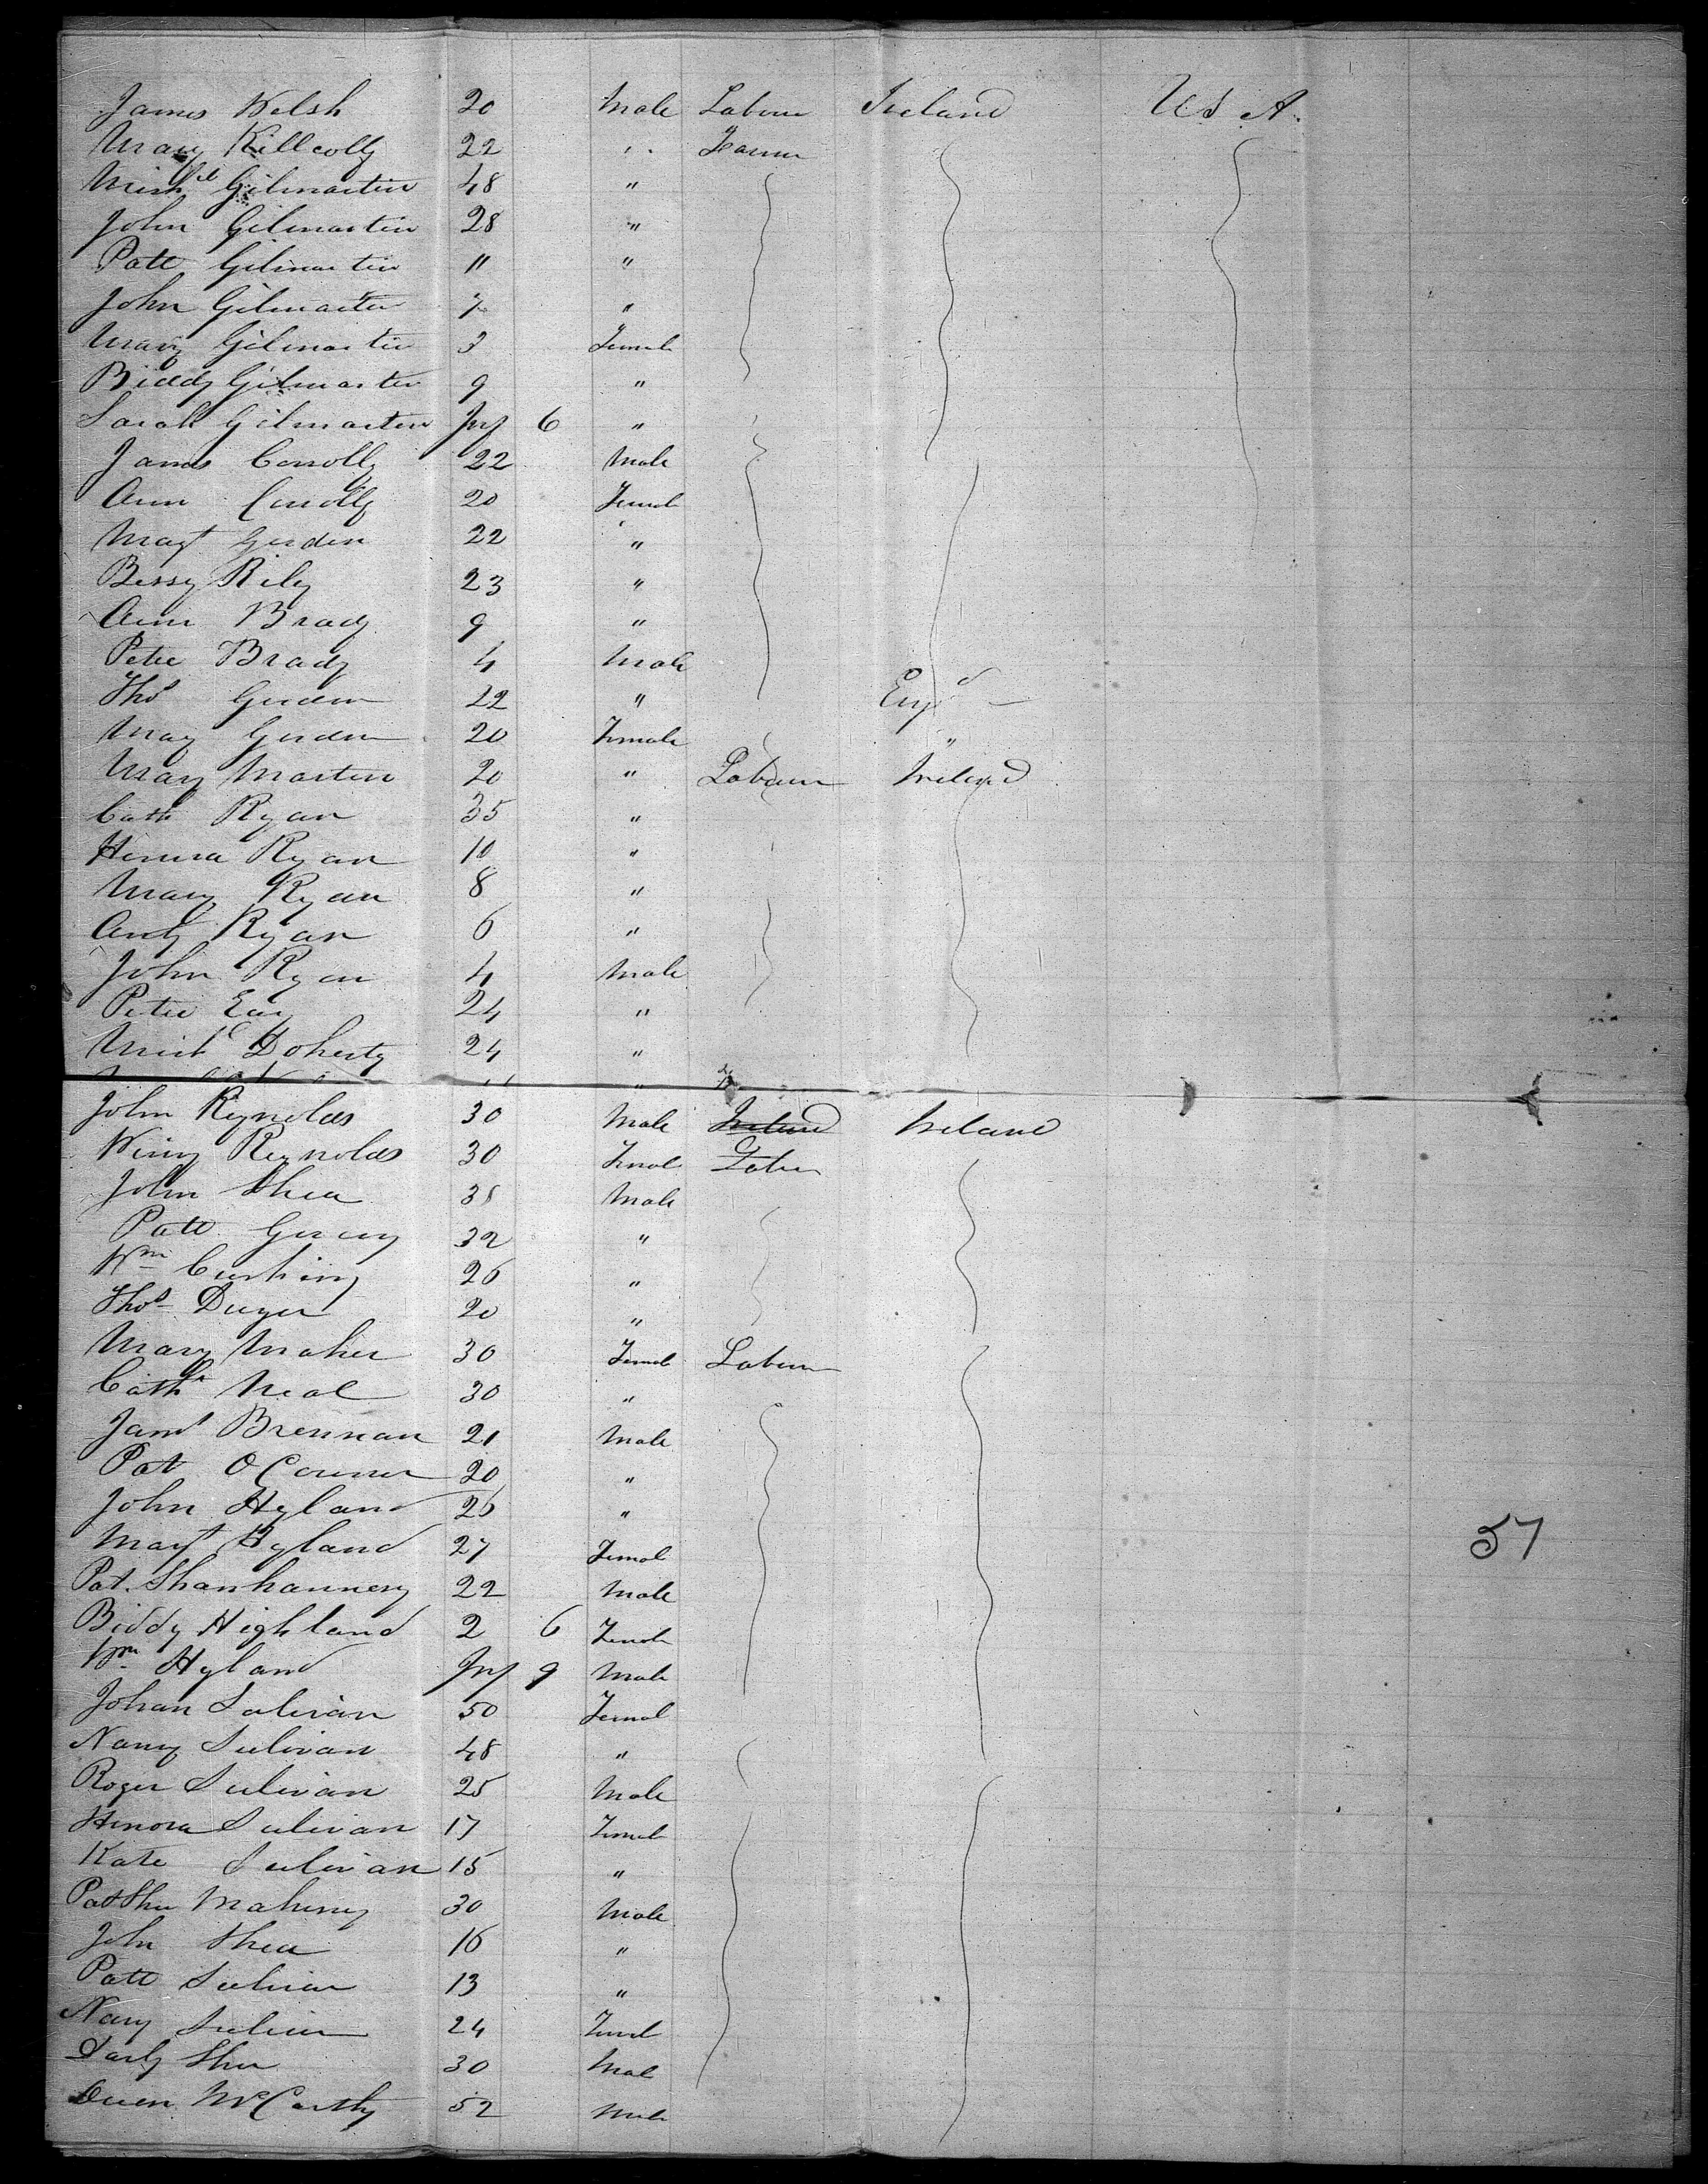 James Welsh 20 Male Labour Ireland US A.
Mary Killcolly 22 " Farmer
Mich'l Gilmartin 48 "
John Gilmartin 28 "
Patt Gilmartin 11 "
John Gilmartin 7 "
Mary Gilmartin 3 Female
Biddy Gilmartin 9 "
Sarah Gilmartin Inf 6 "
James Connolly 22 Male
Ann Connolly 20 Female
Magt 22 "
Bessy Riley 23 "
Ann Brady 9 "
Peter Brady 4 Male
Thos 22 " Engd
May 20 Female "
Mary Martin 20 " Labour Ireland
Cath Ryan 35 "
Honora Ryan 10 "
Mary Ryan 8 "
Ryan 6 "
John Ryan 4 Male
Peter 24 "
Mich Doherty 24 "
John Reynolds 30 Male Ireland Ireland
Winny Reynolds 30 Femal Labur
John Shea 35 Male
Patt 32 "
Wm Cushing 26 "
Thos Dwyer 20 "
Mary Maher 30 Femal Labour
Cathe Neal 30 "
Jams Brennan 21 Male
Pat O Connor 20 "
John Hyland 26 "
Mart Hyland 27 Femal
Pat. Shanhannesy 22 Male
Biddy Highland 2 6 Female
Wm Hyland Inf 9 Male
Johan Sulivan 50 Femal
Nancy Sulivan 48 "
Roger Sulivan 25 Male
Honora Sulivan 17 Femal
Kate Sulivan 15 "
Pat Shea Mahony 30 Male
John Shea 16 "
Patt Sulivan 13 "
Nancy Sulivan 24 Femal
Darby Shea 30 Mal
Owen McCarthy 52 Male
57